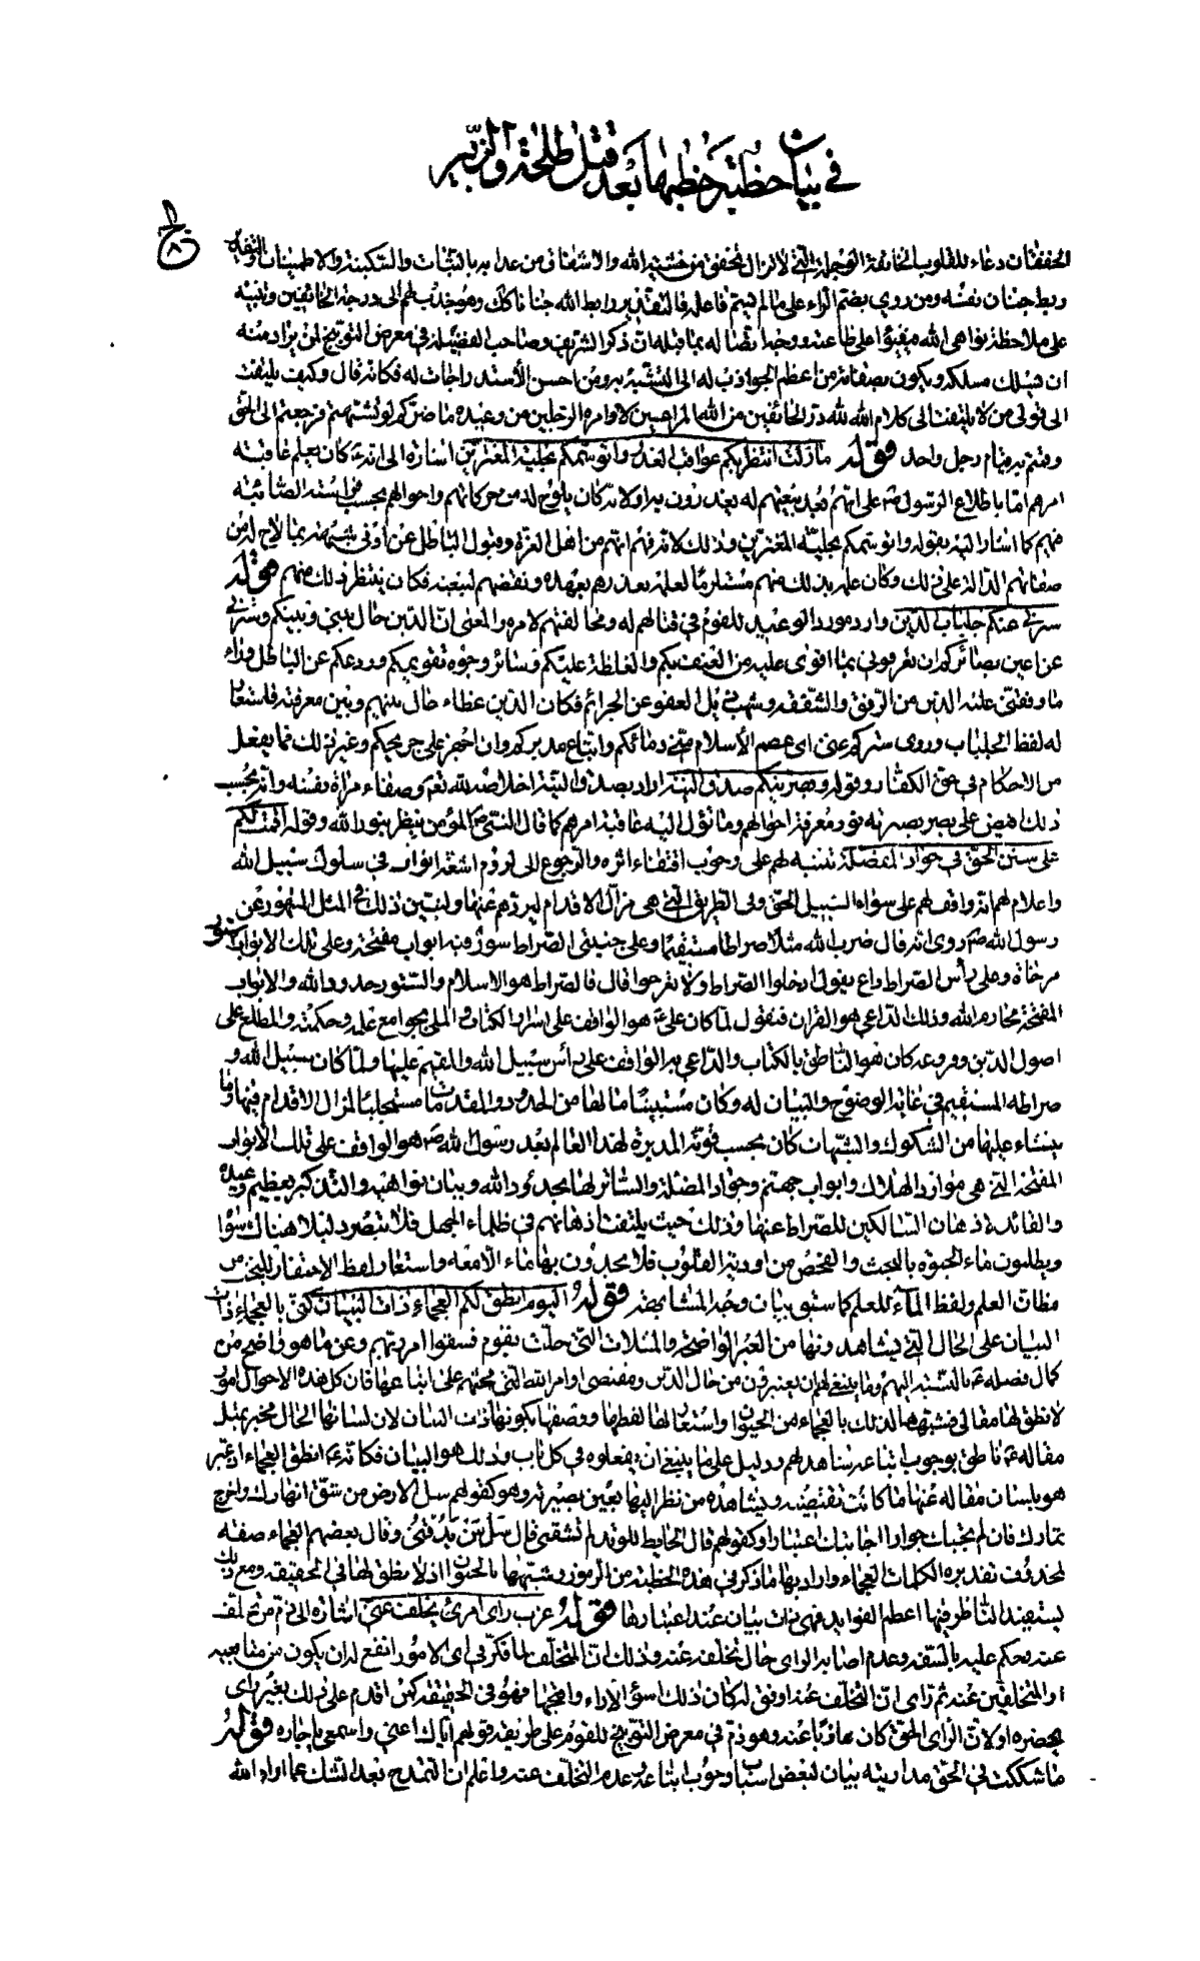 في بيان خطبة خطبها بعد قتل طلحة والزبير
الخفقان دعاء للقلوب الخائفة الوجلة التي لا تزال تخفق من خشية الله والاشفاق من عذابه بالثبات والسكينة والاطمينان والتقدير
وربط جنان نفسه ومن روى بضم الراء على ما لم يسم فاعله فالتقدير ربط الله جنانا كان كذلك وهو جذب لهم الى درجة الخائفين وتنبيه
على ملاحظة نواهي الله فيفيئوا على طاعته ووجه اتصاله بما قبله ان ذكر الشريف وصاحب الفضيلة في معرض التوبيخ لمن يراد منه
ان يسلك مسلكه ويكون بصفاته من اعظم الجواذب له الى التشبه به ومن احسن الاستدراجات له فكانه قال وكيف يلتفت
الى قولي من لا يلتفت الى كلام الله لله در الخائفين من الله المراعين لاوامره الوجلين من وعيده ما ضركم لو تشبهتم فرجعتم الى الحق
وقمتم به قيام رجل واحد قوله ما زلت انتظر بكم عواقب الغدر واتوسمكم بحلية المغترين اشارة الى انه كان يعلم عاقبة
امرهم اما باطلاع الرسول ص على انهم بعد بيعتهم له يغدرون به او لانه كان يلوح له من حركاتهم واحوالهم بحسب فراسته الصائبة
فيهم كما اشار اليه بقوله واتوسمكم بحلية المغترين وذلك لانه فهم انهم من اهل الغرة وقبول الباطل عن ادنى شبهة بما لاح له من
صفاتهم الدالة على ذلك وكان علمه بذلك منهم مستلزما لعلمه بغدرهم بعهده ونقضهم لبيعته فكان ينتظر ذلك منهم قوله
سترني عنكم جلباب الدين وارد مورد الوعيد للقوم في قتالهم له ومخالفتهم لامره والمعنى ان الدين حال بيني وبينكم وسترني
عن اعين بصائركم ان تعرفوني بما اقوى عليه من العنف بكم والغلظة عليكم وسائر وجوه تقويمكم وردعكم عن الباطل وراء
ما وقفني عليه الدين من الرفق والشفقة وشهب ذيل العفو عن الجرائم فكان الدين غطاء حال بينهم وبين معرفته فاستعار
له لفظ الجلباب وروى ستركم عني اي عصم الاسلام مني دمائكم واتباع مدبركم وان اجهز على جريحكم وغير ذلك مما يفعل
من الاحكام في حق الكفار وقوله وبصرنيكم صدق النية اراد بصدق النية اخلاصه لله تعالى وصفاء مرآة نفسه وانه بحسب
ذلك افيض على بصر بصيرته نور معرفة احوالهم وما تؤل اليه عاقبة امرهم كما قال النبي ص المؤمن ينظر بنور الله وقوله اقمت لكم
على سنن الحق في جواد المضلة تنبيه لهم على وجوب اقتفاء اثره والرجوع الى لزوم اشعة انواره في سلوك سبيل الله
واعلام لهم انه واقف لهم على سواء السبيل الحق وفي الطريق التي هي مزال الاقدام ليردهم عنها ولنبين ذلك في المثل المشهور عن
رسول الله ص روى انه قال ضرب الله مثلا صراطا مستقيما وعلى جنبتي الصراط سور فيه ابواب مفتحة وعلى تلك الابواب ستور
مرخاة وعلى رأس الصراط داع يقول ادخلوا الصراط ولا تعرجوا قال فالصراط هو الاسلام والستور حدود الله والابواب
المفتحة محارم الله وذلك الداعي هو القران فنقول لما كان علي ع هو الواقف على اسرار الكتاب والملي بجوامع علمه وحكمته والمطلع على
اصول الدين وفروعه كان هو الناطق بالكتاب والداعي به الواقف على رأس سبيل الله والمقيم عليها ولما كان سبيل الله و
صراطه المستقيم في غاية الوضوح والبيان له وكان مستبينا ما لها من الحدود والمقدمات مستجليا لمزال الاقدام فيها وما
ينشاء عليها من الشكوك والشبهات كان بحسب قوته المدبرة لهذا العالم بعد رسول الله ص هو الواقف على تلك الابواب
المفتحة التي هي موارد الهلاك وابواب جهنم وجواد المضلة والساتر لها بحدود الله وبيان نواهيه والتذكير بعظيم وعيده
والقائد لاذهان السالكين للصراط عنها وذلك حيث يلتفت اذهانهم في ظلماء الجهل فلا تبصر دليلا هناك سواه
ويطلبون ماء الحيوة بالبحث والفحص من اودية القلوب فلا يجدون بها ماء الا معه واستعار لفظ الاحتفار للبحث من
مظان العلم ولفظ الماء للعلم كما سبق بيان وجه المشابهة قوله اليوم انطق لكم العجماء ذات البيان كنى بالعجماء ذات
البيان على الحال التي يشاهدونها من العبر الواضحة والمثلات التي حلت بقوم فسقوا امر ربهم وعن ما هو واضح من
كمال فضله ع بالنسبة اليهم وما ينبغي لهم ان يعتبرون من حال الدين ومقتضى اوامر الله التي يحثهم على اتباعها فان كل هذه الاحوال امور
لا نطق لها مقالي فشبهها لذلك بالعجماء من الحيوان واستعار لها لفظها ووصفها بكونها ذات البيان لان لسانها الحال مخبر بمثل
مقاله ع ناطق بوجوب اتباعه شاهد لهم ودليل على ما ينبغي ان يفعلوه في كل باب وذلك هو البيان فكانه ع انطق العجماء اذ عبر
هو بلسان مقاله عنها ما كانت تقتضيه ويشاهده من نظر اليها بعين بصيرته وهو كقولهم سل الارض من شق انهارك واخرج
ثمارك فان لم تجبك حوارا اجابتك اعتبارا وكقولهم قال الحايط للوتد لم تشقني قال سل من يدقني وقال بعضهم العجماء صفة
لمحذوف تقديره الكلمات العجماء واراد بها ما ذكر في هذه الخطبة من الرموز وشبهها بالحيوان اذ لا نطق لها في الحقيقة ومع ذلك
يستفيد الناظر فيها اعظم الفوايد فهي ذات بيان عند اعتبارها قوله عزب رأى امرئ تخلف عني اشارة الى ذم من تخلف
عنه وحكم عليه بالسفه وعدم اصابة الراى حال تخلفه عنه وذلك ان المتخلف لما فكر في اى الامور انفع له ان يكون من متابعيه
او المتخلفين عنه ثم رأى ان التخلف عنه اوفق له كان ذلك اسوء الاراء واقبحها فهو في الحقيقة كمن اقدم على ذلك بغير رأى
يحضره او لان الرأى الحق كان عازبا عنه وهو ذم في معرض التوبيخ للقوم على طريقة قولهم اياك اعني واسمعي يا جاره قوله
ما شككت في الحق مذ اريته بيان لبعض اسباب وجوب اتباعه وعدم التخلف عنه واعلم ان التمدح بعدم الشك عما اراه الله